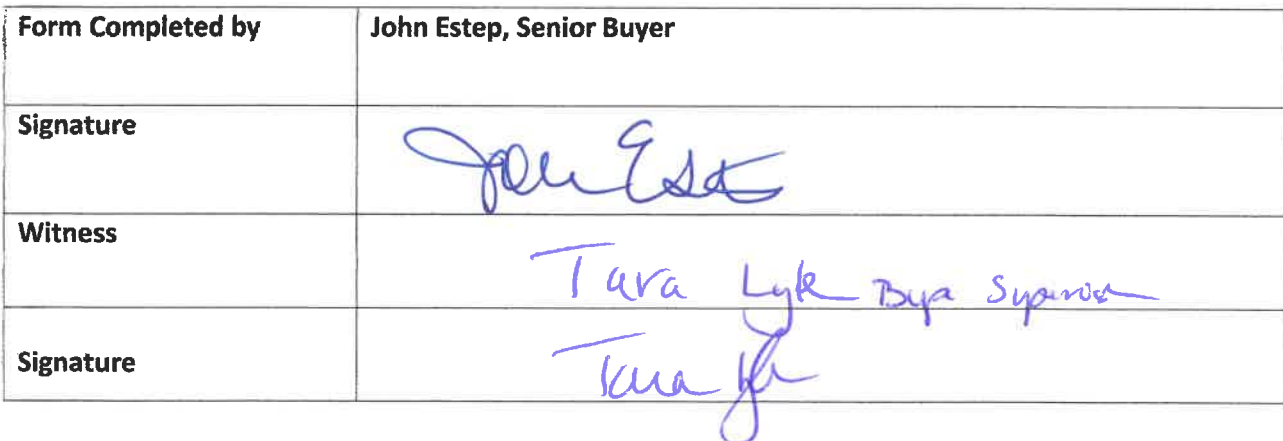 Form Completed by John Estep, Senior Buyer
Signature John Este
Witness Tara Lyle
Signature Tara